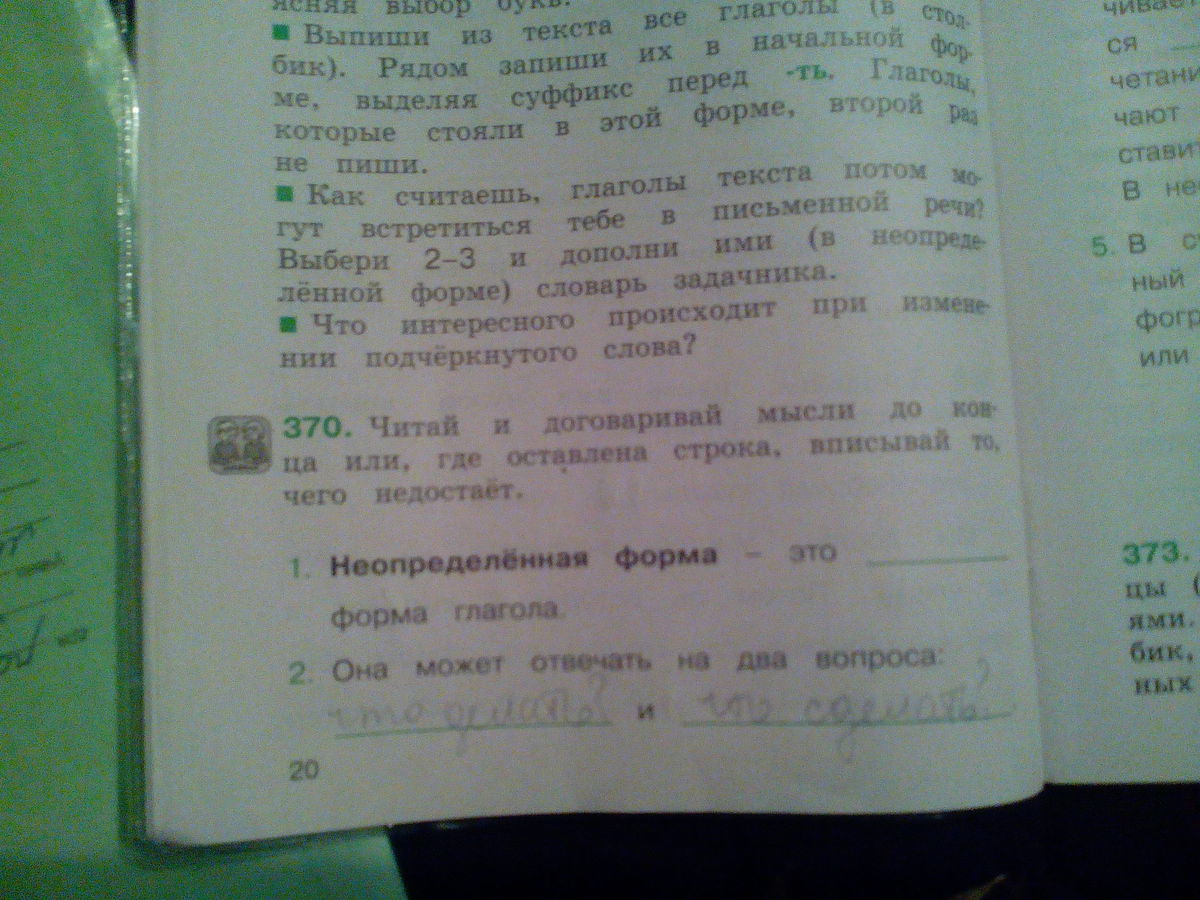 ясняя выбор букв.
■ Выпиши из текста все глаголы (в стол-
бик). Рядом запиши их в начальной фор-
ме, выделяя суффикс перед -ть. Глаголы,
которые стояли в этой форме, второй раз
не пиши.
■ Как считаешь, глаголы текста потом мо-
гут встретиться тебе в письменной речи?
Выбери 2–3 и дополни ими (в неопреде-
лённой форме) словарь задачника.
■ Что интересного происходит при измене-
нии подчёркнутого слова?
370. Читай и договаривай мысли до кон-
ца или, где оставлена строка, вписывай то,
чего недостаёт.
1. Неопределённая форма – это
форма глагола.
2. Она может отвечать на два вопроса:
что делать? и что сделать?
20
чивает
ся
четани
чают
ставит
В не
5. В ст
ный
фогр
или
373.
цы (
ями.
бик,
ных